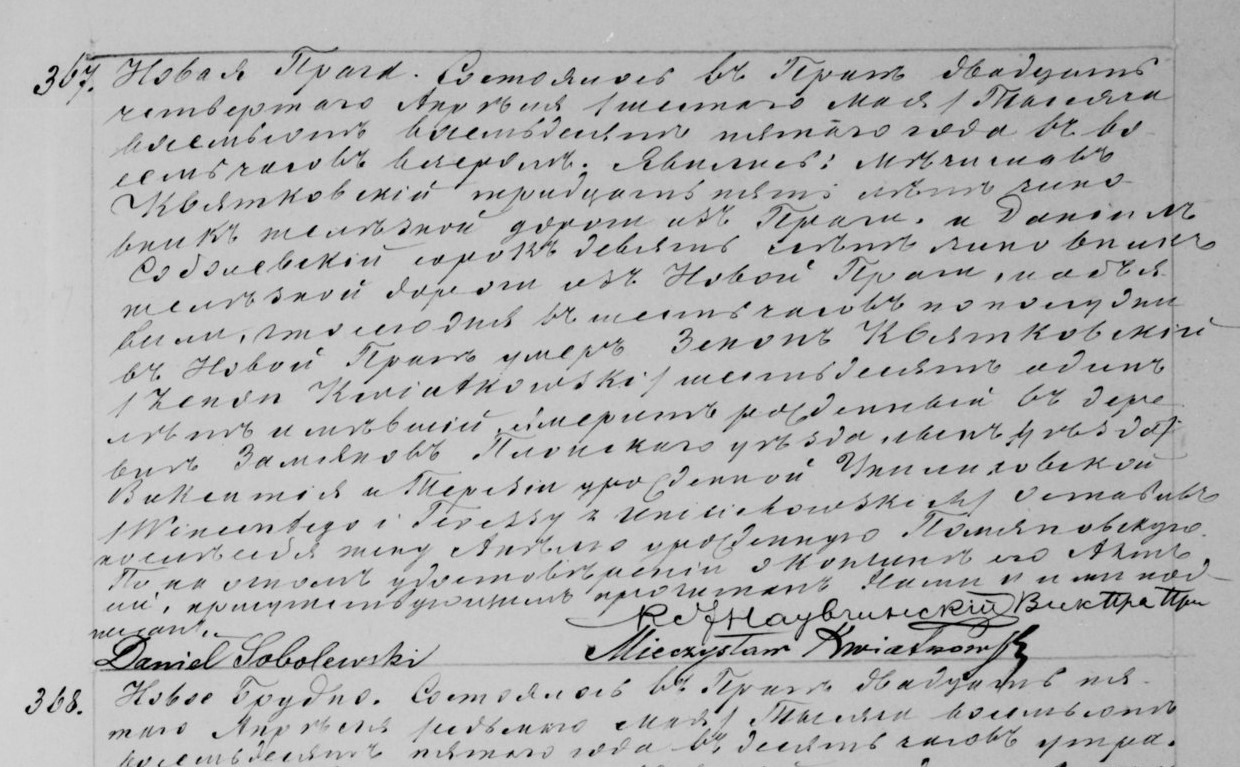 367. Новая Прага. Состоялось въ Прагѣ двадцать
четвертаго Апрѣля /шестаго мая/ Тысяча
восемьсотъ восемьдесятъ пятаго года въ во-
семь часовъ вечеромъ. Явились: Мѣчиславъ
Квятковскій тридцать пять лѣтъ чино-
вникъ желѣзной дороги изъ Праги. и Даніилъ
Соболевскій сорокъ девять лѣтъ чиновникъ
желѣзной дороги изъ Новой Праги, и объя-
вили, что сегодня въ шесть часовъ по полудни
въ Новой Прагѣ умеръ Зенонъ Квятковскій
/Zenon Kwiatkowski/ шестьдесятъ одинъ
лѣтъ имѣвшій, эмеритъ рожденный въ дере
внѣ Плонскаго уѣзда, сынъ
Викентія и Терезіи урожденной Унилиховской
/Wincentego i Teressy z Unichowskich/ Оставивъ
послѣ себя жену Анѣлю урожденную Помяновскую.
По настномъ удостовѣреніи о кончинѣ его Актъ
сей, присутствующимъ прочитанъ Нами и ими под-
писанъ.
Вик Пра При
Daniel Sobolewski Mieczysław Kwiatkowski
368. Новое Брудно. Состоялось въ Прагѣ двадцать пя-
таго Апрѣля /седьмаго мая/ Тысяча восемьсотъ
восемьдесятъ пятаго года въ десять часовъ утра.